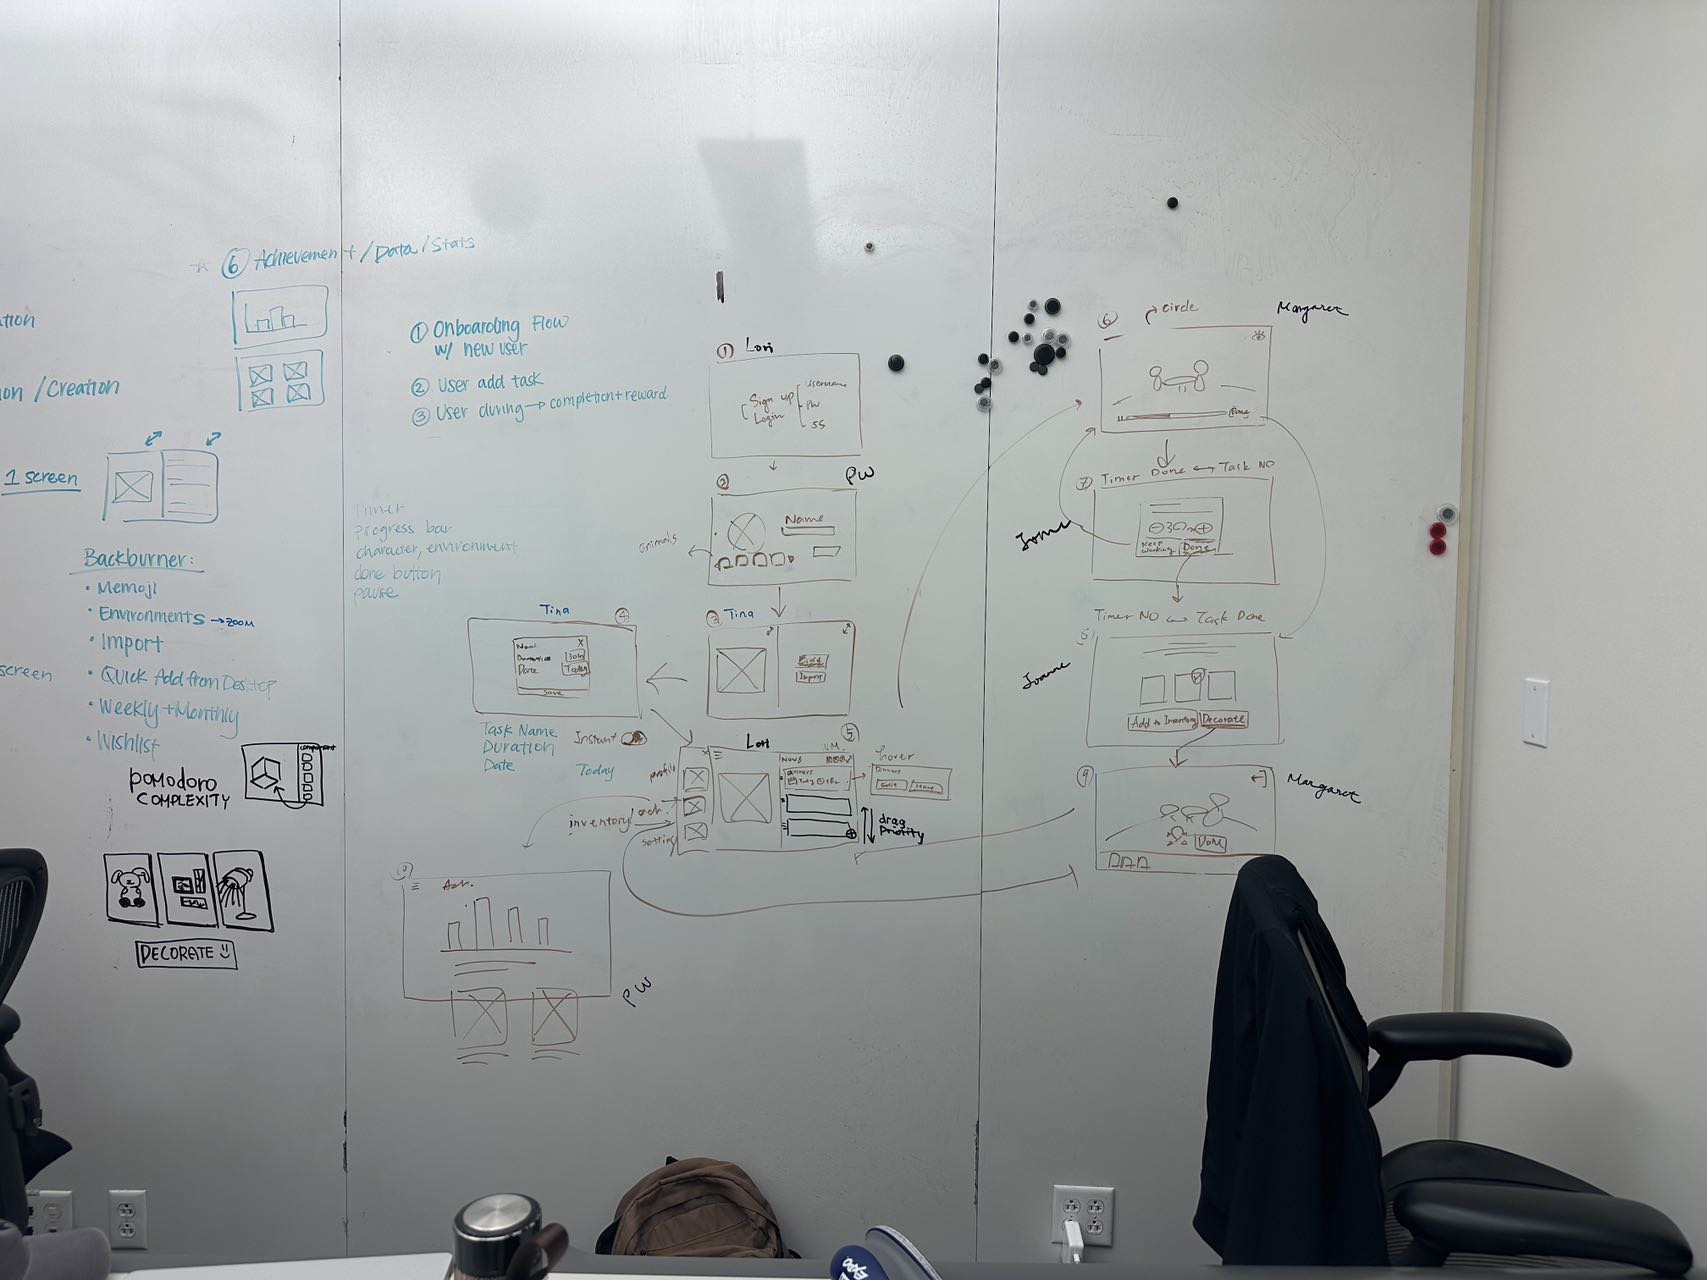 ⑥ Achievement/Data/Stats
on/Creation
1 screen
screen
Backburner:
• Memoji
• Environments → zoom
• Import
• Quick Add from Desktop
• Weekly + Monthly
• Wishlist
pomodoro
COMPLEXITY
DECORATE
① Onboarding Flow
w/ new user
② User add task
③ User during → completion + reward
Timer
progress bar
character, environment
done button
pause
① Lori
Sign up
Login
Username
PW
② PW
Name
animals
③ Tina
Import
Tina ④
Duration
Date Today
save
Task Name
Duration
Date
Instant
Today
Lori ⑤
profile
inventory/ach.
setting
hover
Edit
drag
Priority
Ach.
PW
⑥ circle
Margaret
⑦ Timer Done ↔ Task NO
Keep
working
Done
Timer NO ↔ Task Done
Joanne
Add to Inventory
Decorate
⑨
Margaret
Done
EXPO